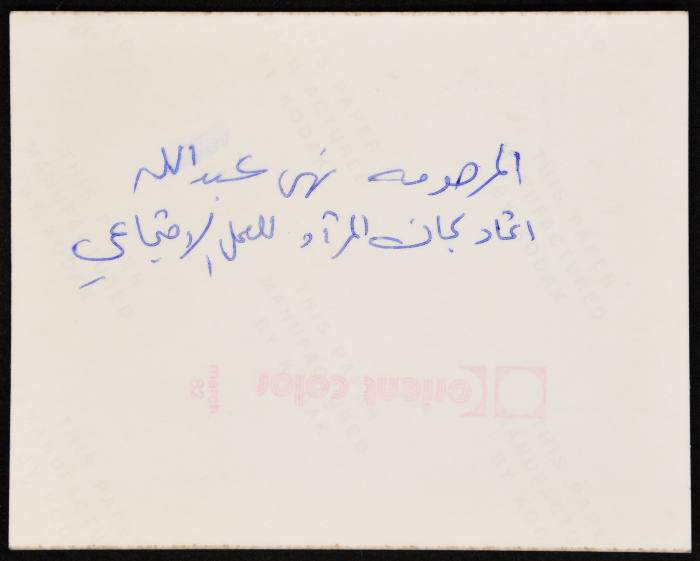 المرحومه نهى عبدالله
اتحاد لجان المرآه للعمل الاجتماعي
orient color
march
82
THIS PAPER
MANUFACTURED
BY KODAK